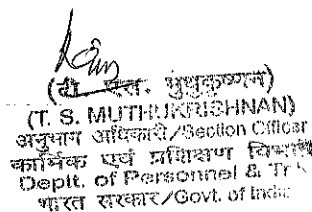 (टी. एस. मुथुकृष्णन)
(T. S. MUTHUKRISHNAN)
अनुभाग अधिकारी/Section Officer
कार्मिक एवं प्रशिक्षण विभाग
Deptt. of Personnel &
भारत सरकार/Govt. of India